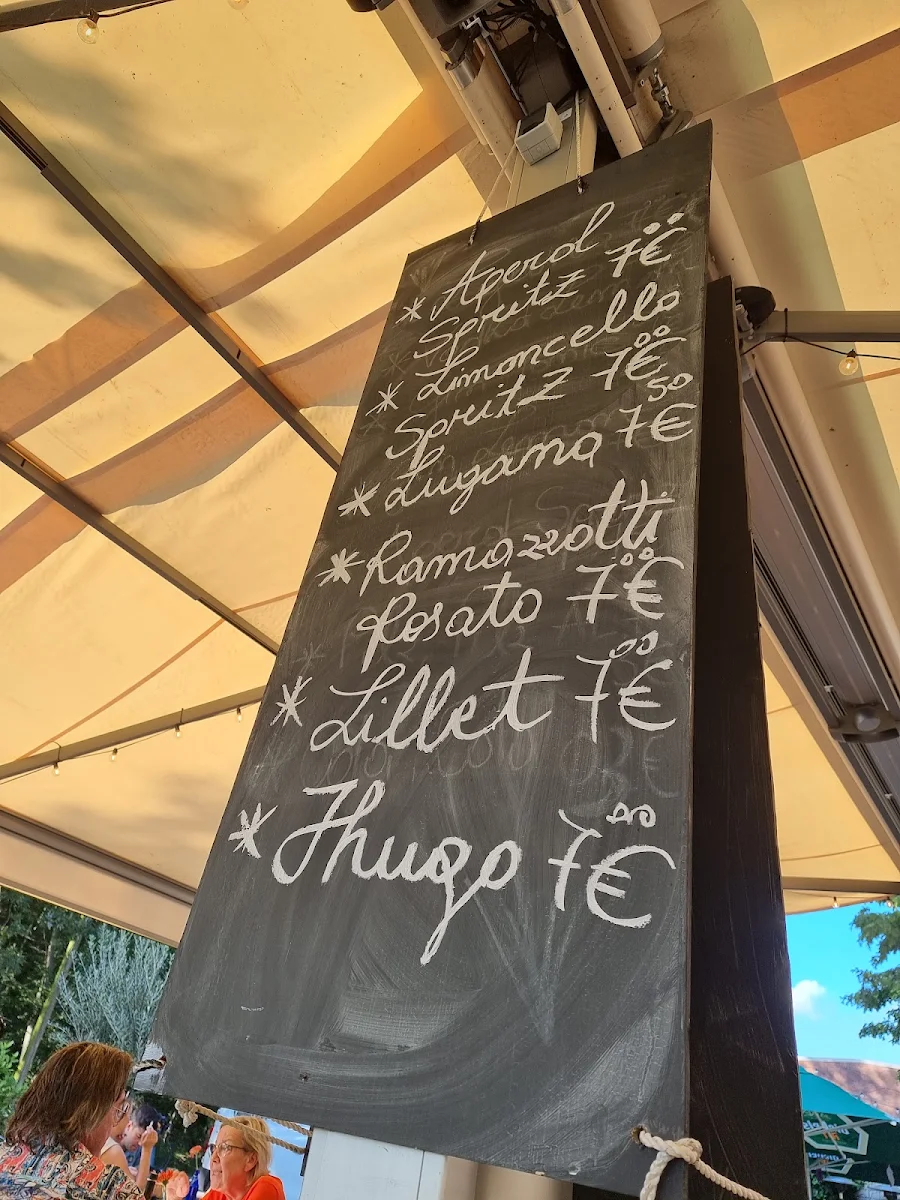 * Aperol
Spritz 7⁰⁰€
* Limoncello
Spritz 7⁰⁰€
* Lugama 7⁵⁰€
* Ramazzotti
Rosato 7⁰⁰€
* Lillet 7⁰⁰€
* Hugo 7⁰⁰€